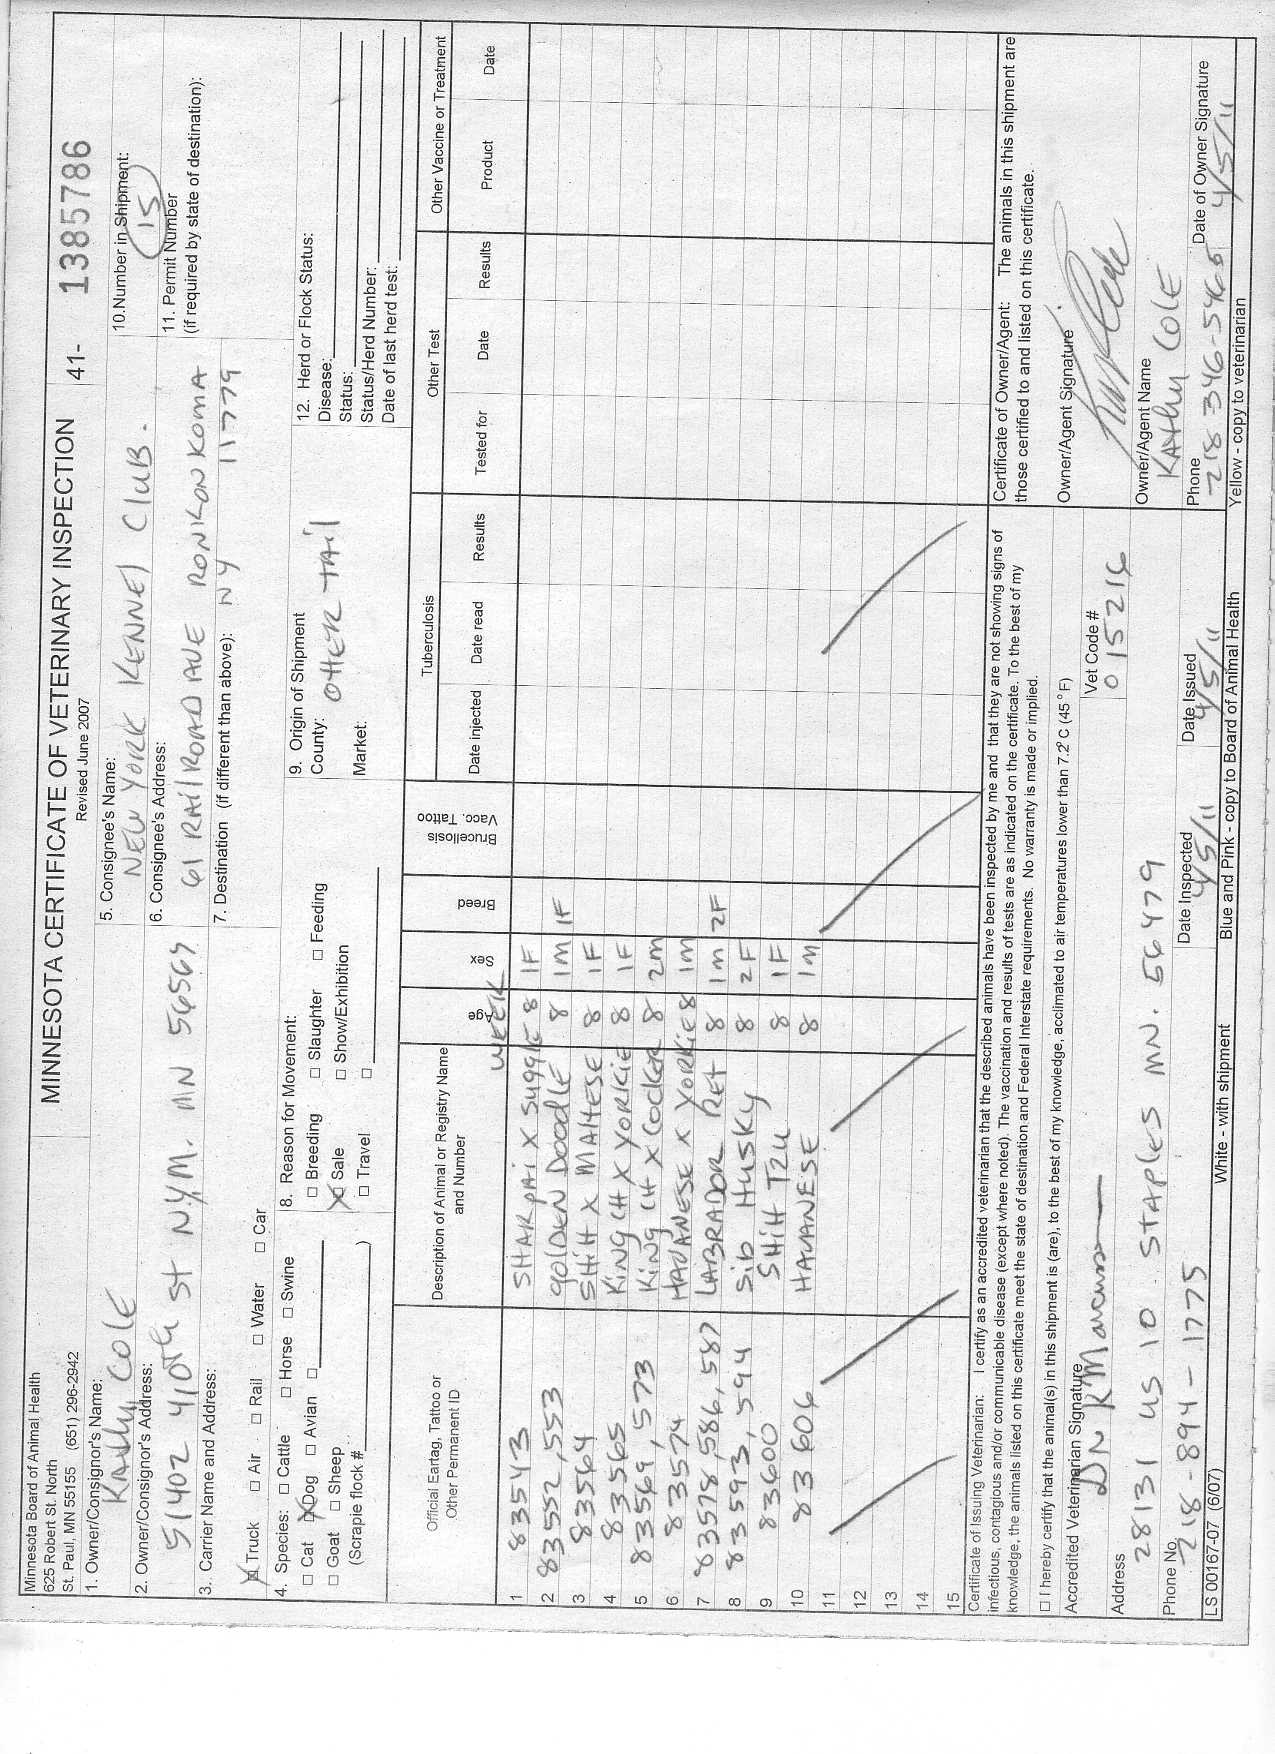 Minnesota Board of Animal Health
625 Robert St. North
St. Paul, MN 55155 (651) 296-2942
MINNESOTA CERTIFICATE OF VETERINARY INSPECTION
Revised June 2007
41- 1385786
1. Owner/Consignor's Name:
Kathy Cole
2. Owner/Consignor's Address:
51402 410th St N.Y.M. MN 56567
3. Carrier Name and Address:
Truck Air Rail Water Car
4. Species: Cattle Horse Swine
Cat Dog Avian
Goat Sheep
(Scrapie flock # )
5. Consignee's Name:
NEW YORK KENNEL Club.
6. Consignee's Address:
61 RAilROAD AVE RONKONKOMA
7. Destination (if different than above): NY 11779
8. Reason for Movement:
Breeding Slaughter Feeding
Sale Show/Exhibition
Travel
9. Origin of Shipment
County: OTTER TAil
Market:
10. Number in Shipment:
15
11. Permit Number
(if required by state of destination):
12. Herd or Flock Status:
Disease:
Status:
Status/Herd Number:
Date of last herd test:
Official Eartag, Tattoo or Other Permanent ID
Description of Animal or Registry Name and Number
Age
WEEK
Sex
Breed
Brucellosis Vacc. Tattoo
Tuberculosis
Date injected Date read Results
Other Test
Tested for Date Results
Other Vaccine or Treatment
Product Date
1 83543 SHAR pAi X 8 1F
2 83552,553 gOlDEN DOODLE 8 1M 1F
3 83564 SHiH X MAlTESE 8 1F
4 83565 KiNg CH X YORKiE 8 1F
5 83569,573 KiNg CH X COCKER 8 2M
6 83574 HAVANESE X YORKiE 8 1M
7 83578,586,587 LABRADOR RET 8 1M 2F
8 83593,594 Sib HUSKY 8 2F
9 83600 SHiH TZU 8 1F
10 83606 HAVANESE 8 1M
11
12
13
14
15
Certificate of Issuing Veterinarian: I certify as an accredited veterinarian that the described animals have been inspected by me and that they are not showing signs of
infectious, contagious and/or communicable disease (except where noted). The vaccination and results of tests are as indicated on the certificate. To the best of my
knowledge, the animals listed on this certificate meet the state of destination and Federal Interstate requirements. No warranty is made or implied.
I hereby certify that the animal(s) in this shipment is (are), to the best of my knowledge, acclimated to air temperatures lower than 7.2°C (45° F)
Accredited Veterinarian Signature
Vet Code #
015216
Address
28131 US 10 STAPLES MN. 56479
Phone No.
218-894-1775
Date Inspected
4/5/11
Date Issued
4/5/11
Certificate of Owner/Agent: The animals in this shipment are
those certified to and listed on this certificate.
Owner/Agent Signature
Owner/Agent Name
KAthy COlE
Phone
218 346-5465
Date of Owner Signature
4/5/11
LS 00167-07 (6/07) White - with shipment Blue and Pink - copy to Board of Animal Health Yellow - copy to veterinarian